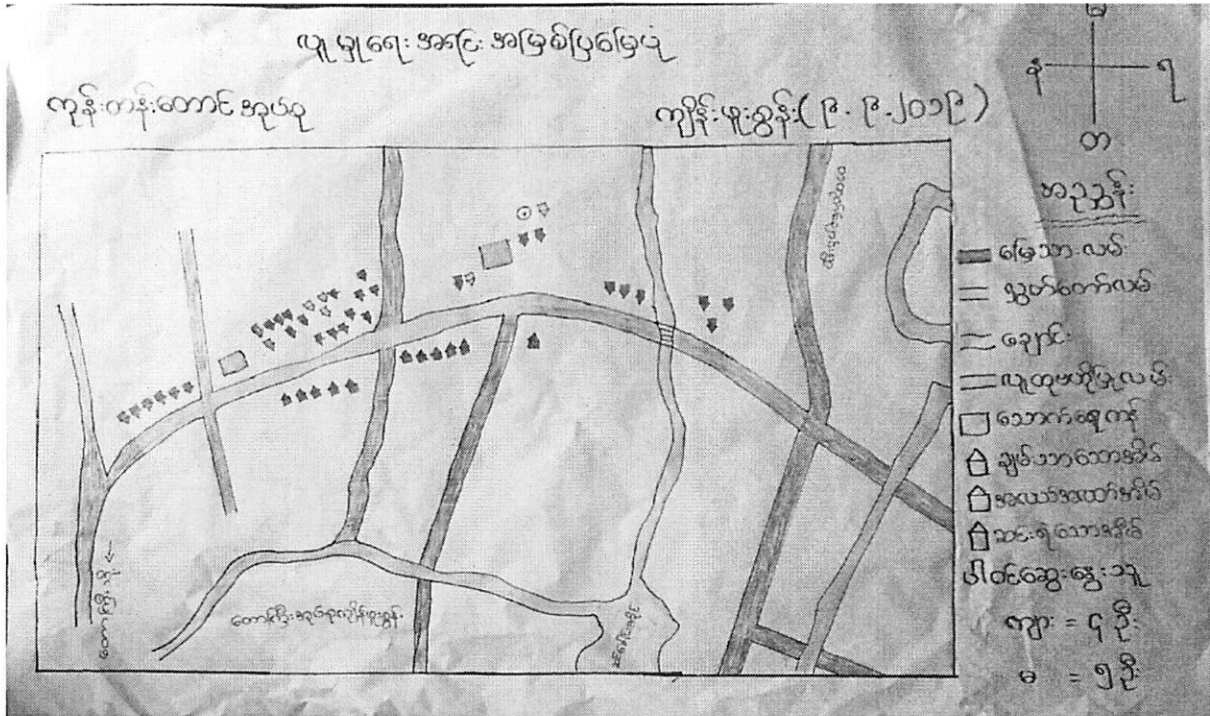 လူမှုရေးအရင်းအမြစ်ပြမြေပုံ
ကုန်းတန်းတောင်အုပ်စု ကျိုန်းဖူးစွန်း(၉.၉.၂၀၁၉)
မ
န ရ
တ
အညွှန်း
မြေသားလမ်း
လွှတ်တော်လမ်း
ချောင်း
လူထုဗဟိုပြုလမ်း
သောက်ရေကန်
ချမ်းသာသောအိမ်
အလယ်အလတ်အိမ်
ဆင်းရဲသောအိမ်
ပါဝင်ဆွေးနွေးသူ
ကျား = ၄ ဦး
မ = ၅ ဦး